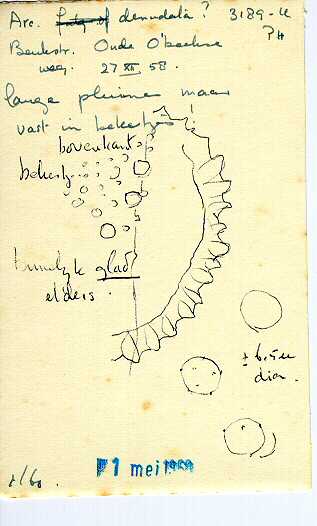 Arc. denudata? 3189-u
PH
Beukstr. Oude O'bechse
weg. 27 XII 58.
lange pluimen maar
vast in bekertjes!
bovenkant
bekertj
glad
elders.
± 6.5 u
dia.
1 mei 1959